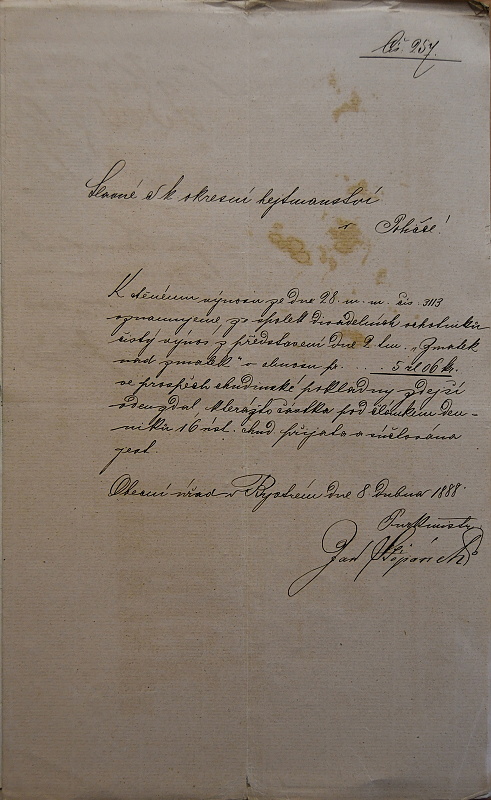 Čís. 257.
Slavné c k okresní hejtmanství
v Poličce!
K ctěnému výnosu ze dne 28. m. m. čís. 3113
oznamujeme, že spolek divadelních ochotníků
čistý výnos z představení dne 2. t.m. „Zmatek
nad zmatek" v obnosu pr. . . . 5 zl 06 kr.
ve prospěch chudinské pokladny zdejší
odevzdal, kterážto částka pod článkem den-
níku 16 úst. chud. přijata a súčtována
jest.
Obecní úřad v Bystrém dne 8. dubna 1888.
Purkmistr
Jan